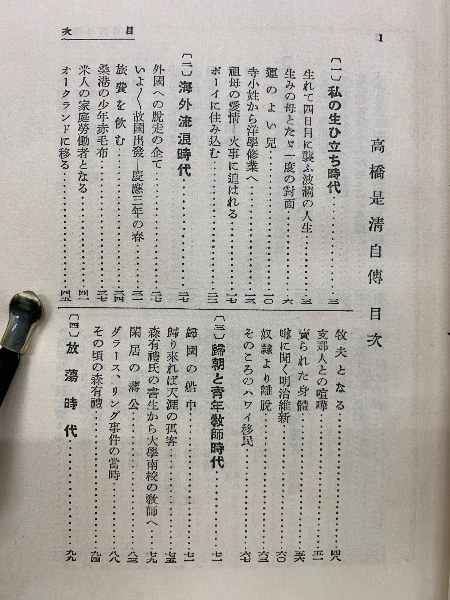 目次
1
高橋是清自傳目次
〔一〕私の生ひ立ち時代……三
生れて四日目に襲ふ波瀾の人生……三
生みの母とたゞ一度の對面……六
運のよい兒……一〇
寺小姓から洋學修業へ……一三
祖母の愛情―火事に追はれる……一七
ボーイに住み込む……二二
〔二〕海外流浪時代……二七
外國への脱走の企て……二七
いよ〱故國出發―慶應三年の春……三一
旅費を飲む……三四
桑港の少年赤毛布……三七
米人の家庭勞働者となる……四一
オークランドに移る……四五
牧夫となる……四八
支那人との喧嘩……五一
賣られた身體……五六
噂に聞く明治維新……六〇
奴隷より離脱……六三
そのころのハワイ移民……六七
〔三〕歸朝と青年教師時代……七一
歸國の船中……七一
歸り來れば天涯の孤客……七五
森有禮氏の書生から大學南校の教師へ……七九
閑居の藩公……八三
グラース、リング事件の當時……八八
その頃の森有禮……九四
〔四〕放蕩時代……九九